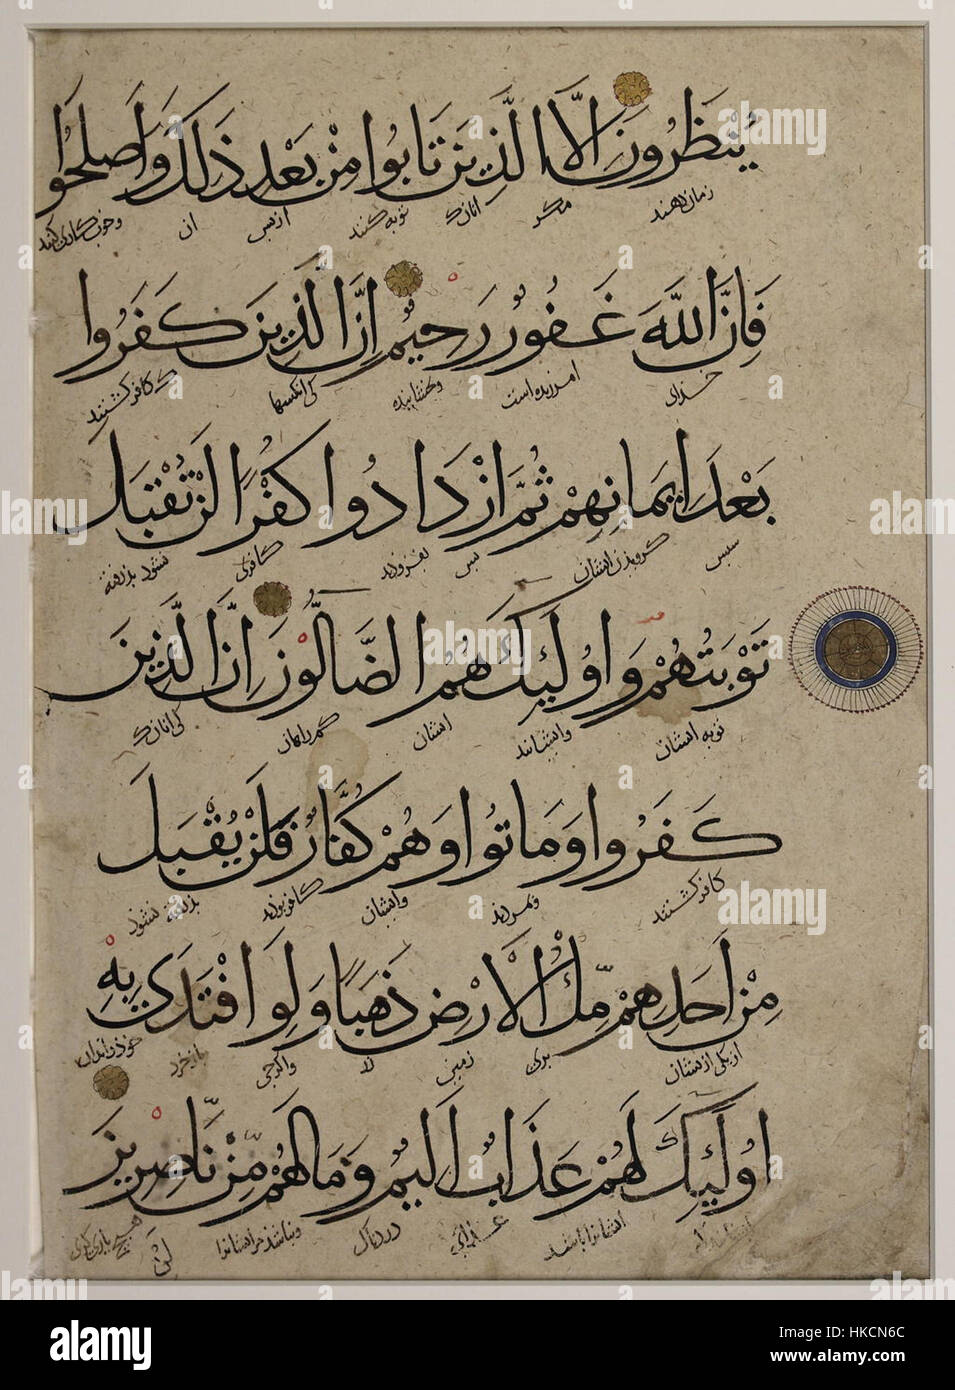 يُنْظَرُونَ اِلَّا الَّذِينَ تَابُوا مِنْ بَعْدِ ذَلِكَ وَاَصْلَحُوا
زمان دهند مگر انانک توبه کنند ازپس ان وخوب کاری کنند
فَاِنَّ اللَّهَ غَفُورٌ رَحِيمٌ اِنَّ الَّذِينَ كَفَرُوا
خدای امرزیده است وبخشاینده کی انکسها که کافر گشتند
بَعْدَ اِيمَانِهِمْ ثُمَّ ازْدَادُوا كُفْرًا لَنْ تُقْبَلَ
سپس گرویدن ایشان پس بفزودند کافری نشود پذرفته
تَوْبَتُهُمْ وَاُولَئِكَ هُمُ الضَّالُّونَ اِنَّ الَّذِينَ
توبه ایشان وایشانند ایشان گم راهان کی انانک
كَفَرُوا وَمَاتُوا وَهُمْ كُفَّارٌ فَلَنْ يُقْبَلَ
کافر گشتند وبمردند وایشان کافر بودند پذرفته نشود
مِنْ اَحَدِهِمْ مِلْءُ الْاَرْضِ ذَهَبًا وَلَوِ افْتَدَى بِهِ
از یکی ازیشان بری زمین زر واگرچی بازخرد خوذرابدان
اُولَئِكَ لَهُمْ عَذَابٌ اَلِيمٌ وَمَا لَهُمْ مِنْ نَاصِرِينَ
ایشانرا باشد عذابی دردناک ونباشد مرایشانرا هیچ یاری گری
alamy
Image ID: HKCN6C
www.alamy.com